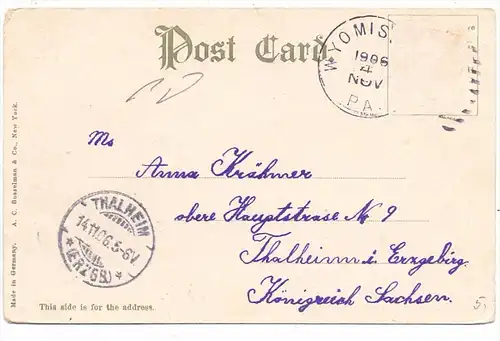 Post Card
WYOMIS
1906
4
NOV
PA.
Ms
Anna Krähmer
obere Hauptstrase Nr 9
Thalheim i. Erzgebirg.
Königreich Sachsen.
THALHEIM
14.11.06.5-6V.
*(ERZGB.)*
Made in Germany. A. C. Bosselman & Co., New York.
This side is for the address.
5.